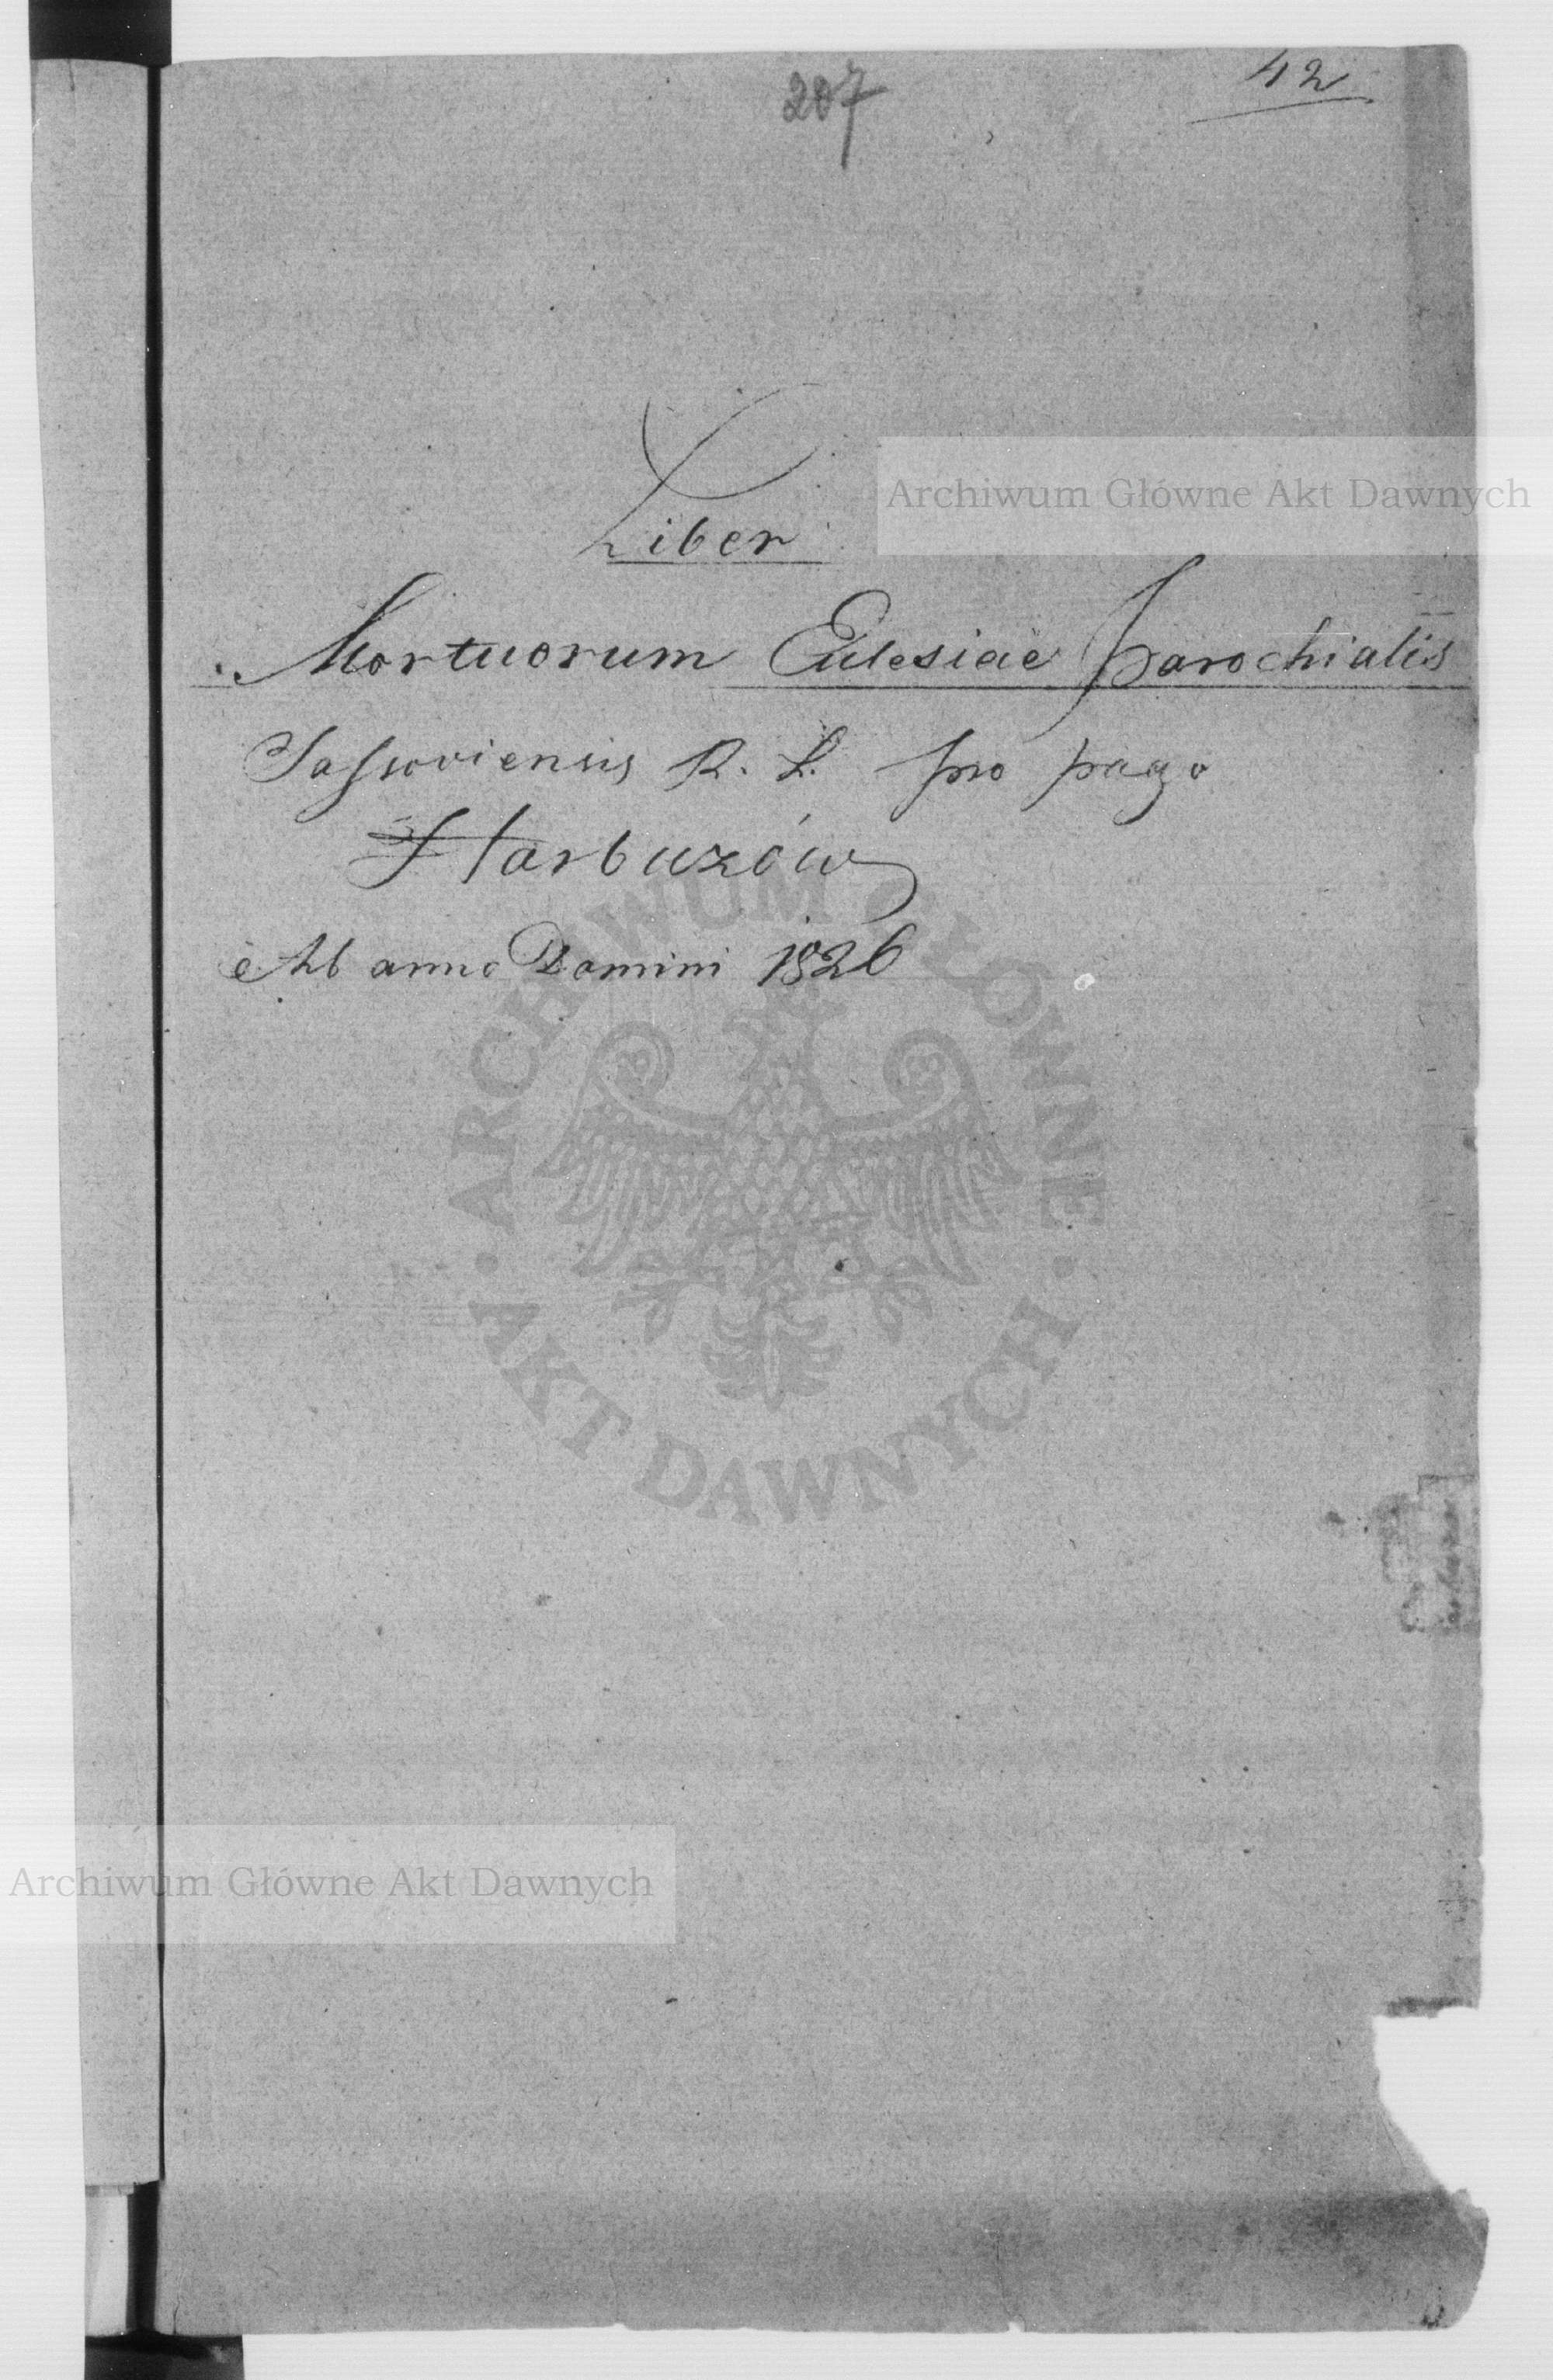 207
42
Liber
Mortuorum Eclesiae Parochialis
Sassoviensis R. L. pro pago
Harbuzów
Ab anno Domini 1826
Archiwum Główne Akt Dawnych
ARCHIWUM GŁÓWNE
AKT DAWNYCH
Archiwum Główne Akt Dawnych